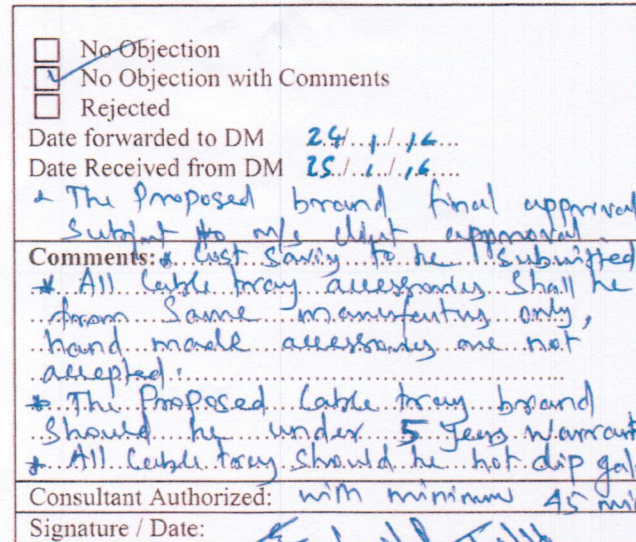 No Objection
No Objection with Comments
Rejected
Date forwarded to DM 24/..1../.16....
Date Received from DM 25./..1../.16....
* The Proposed brand final approval
Subject to M/s client approval.
Comments: * Cost Saving to be submitted
* All Cable tray accessories Shall be
from Same manufacturing only,
hand made accessories are not
accepted.
* The Proposed Cable tray brand
Should be under 5 Years Warrant
* All Cable tray should be hot dip gal
Consultant Authorized: with minimum 45 mi
Signature / Date: